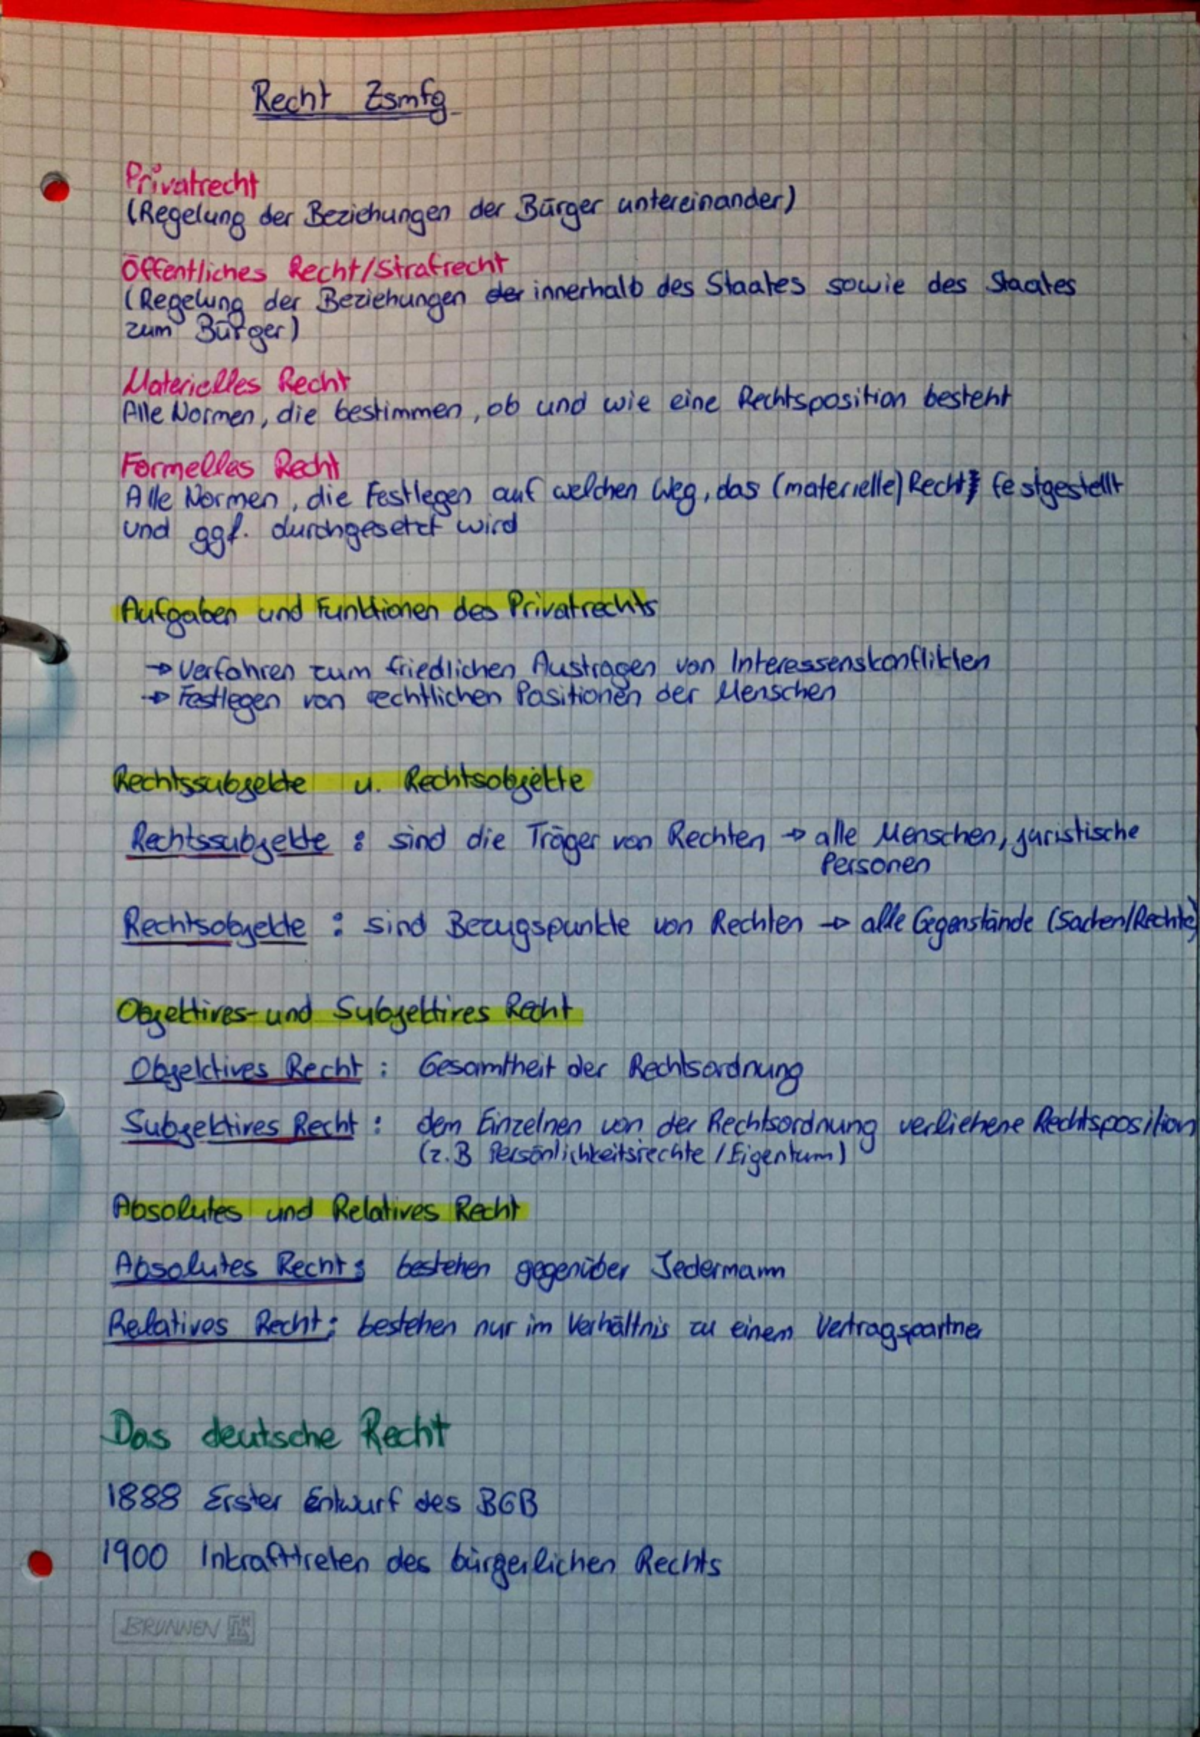 Recht Zsmfg
Privatrecht
(Regelung der Beziehungen der Bürger untereinander)
Öffentliches Recht/Strafrecht
(Regelung der Beziehungen der innerhalb des Staates sowie des Staates
zum Bürger)
Materielles Recht
Alle Normen, die bestimmen, ob und wie eine Rechtsposition besteht
Formelles Recht
Alle Normen, die Festlegen auf welchen Weg, das (materielle) Recht festgestellt
und ggf. durchgesetzt wird
Aufgaben und Funktionen des Privatrechts
→ Verfahren zum friedlichen Austragen von Interessenskonflikten
→ Festlegen von rechtlichen Positionen der Menschen
Rechtssubjekte u. Rechtsobjekte
Rechtssubjekte : sind die Träger von Rechten → alle Menschen, juristische
Personen
Rechtsobjekte : sind Bezugspunkte von Rechten → alle Gegenstände (Sachen/Rechte)
Objektives- und Subjektives Recht
Objektives Recht : Gesamtheit der Rechtsordnung
Subjektives Recht : dem Einzelnen von der Rechtsordnung verliehene Rechtsposition
(z.B Persönlichkeitsrechte / Eigentum)
Absolutes und Relatives Recht
Absolutes Recht : bestehen gegenüber Jedermann
Relatives Recht : bestehen nur im Verhältnis zu einem Vertragspartner
Das deutsche Recht
1888 Erster Entwurf des BGB
1900 Inkrafttreten des bürgerlichen Rechts
BRUNNEN